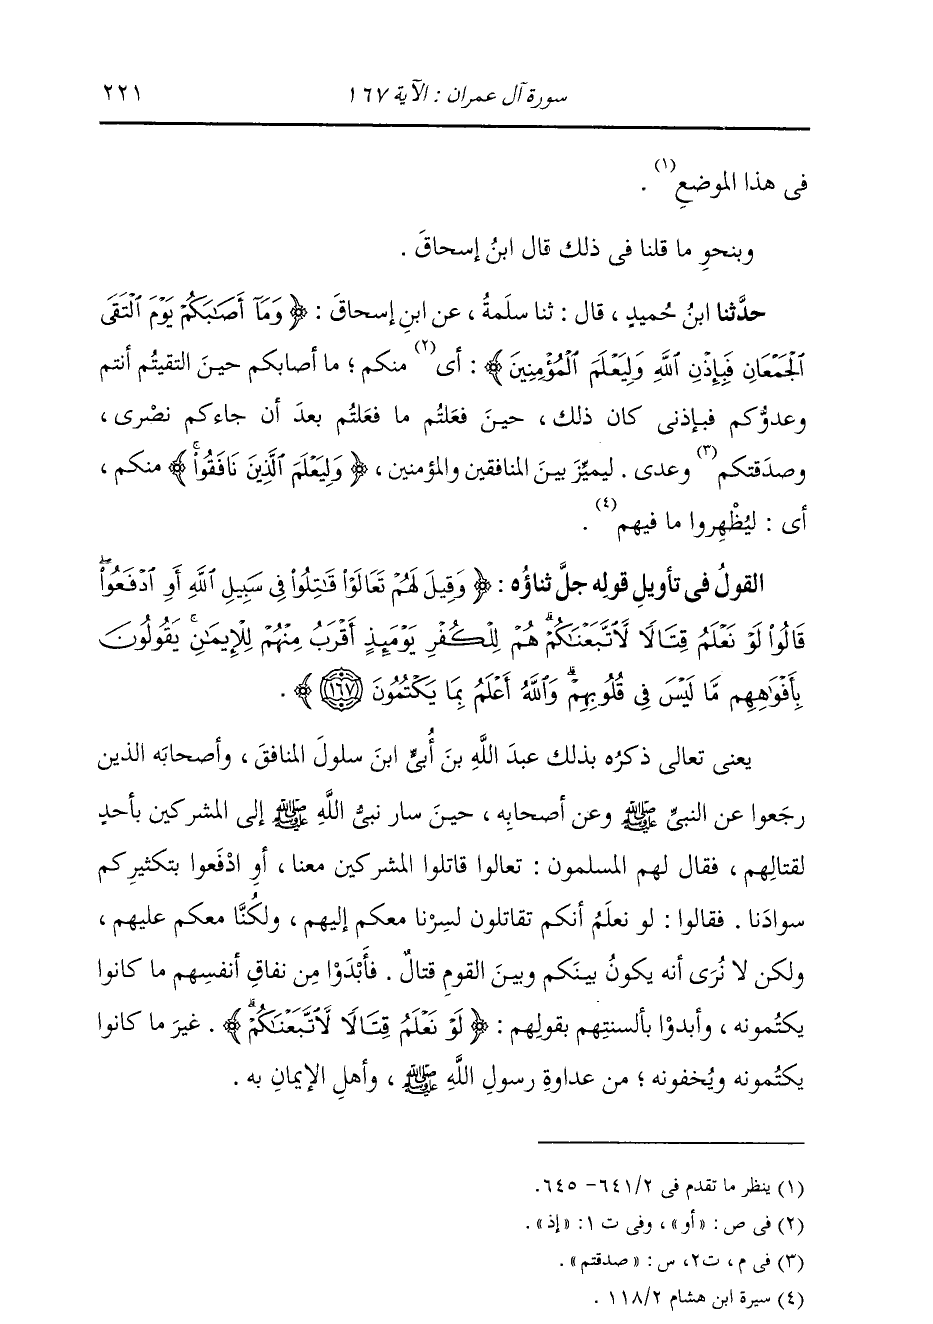 سورة آل عمران : الآية ١٦٧ ٢٢١
فى هذا الموضعِ(١) .
وبنحوِ ما قلنا فى ذلك قال ابنُ إسحاقَ .
حدَّثنا ابنُ حُميدٍ ، قال : ثنا سلَمةُ ، عن ابنِ إسحاقَ : ﴿ وَمَآ أَصَٰبَكُمْ يَوْمَ ٱلْتَقَى
ٱلْجَمْعَانِ فَبِإِذْنِ ٱللَّهِ وَلِيَعْلَمَ ٱلْمُؤْمِنِينَ ﴾ : أى(٢) منكم ؛ ما أصابكم حينَ التقيتُم أنتم
وعدوُّكم فبإذنى كان ذلك ، حينَ فعَلتُم ما فعَلتُم بعدَ أن جاءكم نصْرى ،
وصدَقتكم(٣) وعدى . ليميِّزَ بينَ المنافقين والمؤمنين ، ﴿ وَلِيَعْلَمَ ٱلَّذِينَ نَافَقُواْۚ ﴾ منكم ،
أى : ليُظْهِروا ما فيهم(٤) .
القولُ فى تأويلِ قولِه جلَّ ثناؤُه : ﴿ وَقِيلَ لَهُمْ تَعَالَوْاْ قَٰتِلُواْ فِى سَبِيلِ ٱللَّهِ أَوِ ٱدْفَعُواْۖ
قَالُواْ لَوْ نَعْلَمُ قِتَالًا لَّٱتَّبَعْنَٰكُمْۗ هُمْ لِلْكُفْرِ يَوْمَئِذٍ أَقْرَبُ مِنْهُمْ لِلْإِيمَٰنِۚ يَقُولُونَ
بِأَفْوَٰهِهِم مَّا لَيْسَ فِى قُلُوبِهِمْۗ وَٱللَّهُ أَعْلَمُ بِمَا يَكْتُمُونَ ١٦٧ ﴾ .
يعنى تعالى ذكرُه بذلك عبدَ اللَّهِ بنَ أُبىٍّ ابنَ سلولَ المنافقَ ، وأصحابَه الذين
رجَعوا عن النبىِّ ﷺ وعن أصحابِه ، حينَ سار نبىُّ اللَّهِ ﷺ إلى المشركين بأحدٍ
لقتالِهم ، فقال لهم المسلمون : تعالوا قاتلوا المشركين معنا ، أوِ ادْفَعوا بتكثيرِكم
سوادَنا . فقالوا : لو نعلَمُ أنكم تقاتلون لسِرْنا معكم إليهم ، ولكُنَّا معكم عليهم ،
ولكن لا نُرَى أنه يكونُ بينَكم وبينَ القومِ قتالٌ . فأَبْدَوْا مِن نفاقِ أنفسِهم ما كانوا
يكتُمونه ، وأبدوْا بألسنتِهم بقولِهم : ﴿ لَوْ نَعْلَمُ قِتَالًا لَّٱتَّبَعْنَٰكُمْۗ ﴾ . غيرَ ما كانوا
يكتُمونه ويُخفونه ؛ من عداوةِ رسولِ اللَّهِ ﷺ ، وأهلِ الإيمانِ به .
(١) ينظر ما تقدم فى ٢/ ٦٤١- ٦٤٥.
(٢) فى ص : «أو» ، وفى ت ١: «إذ» .
(٣) فى م ، ت٢، س : «صدقتم» .
(٤) سيرة ابن هشام ٢/ ١١٨ .